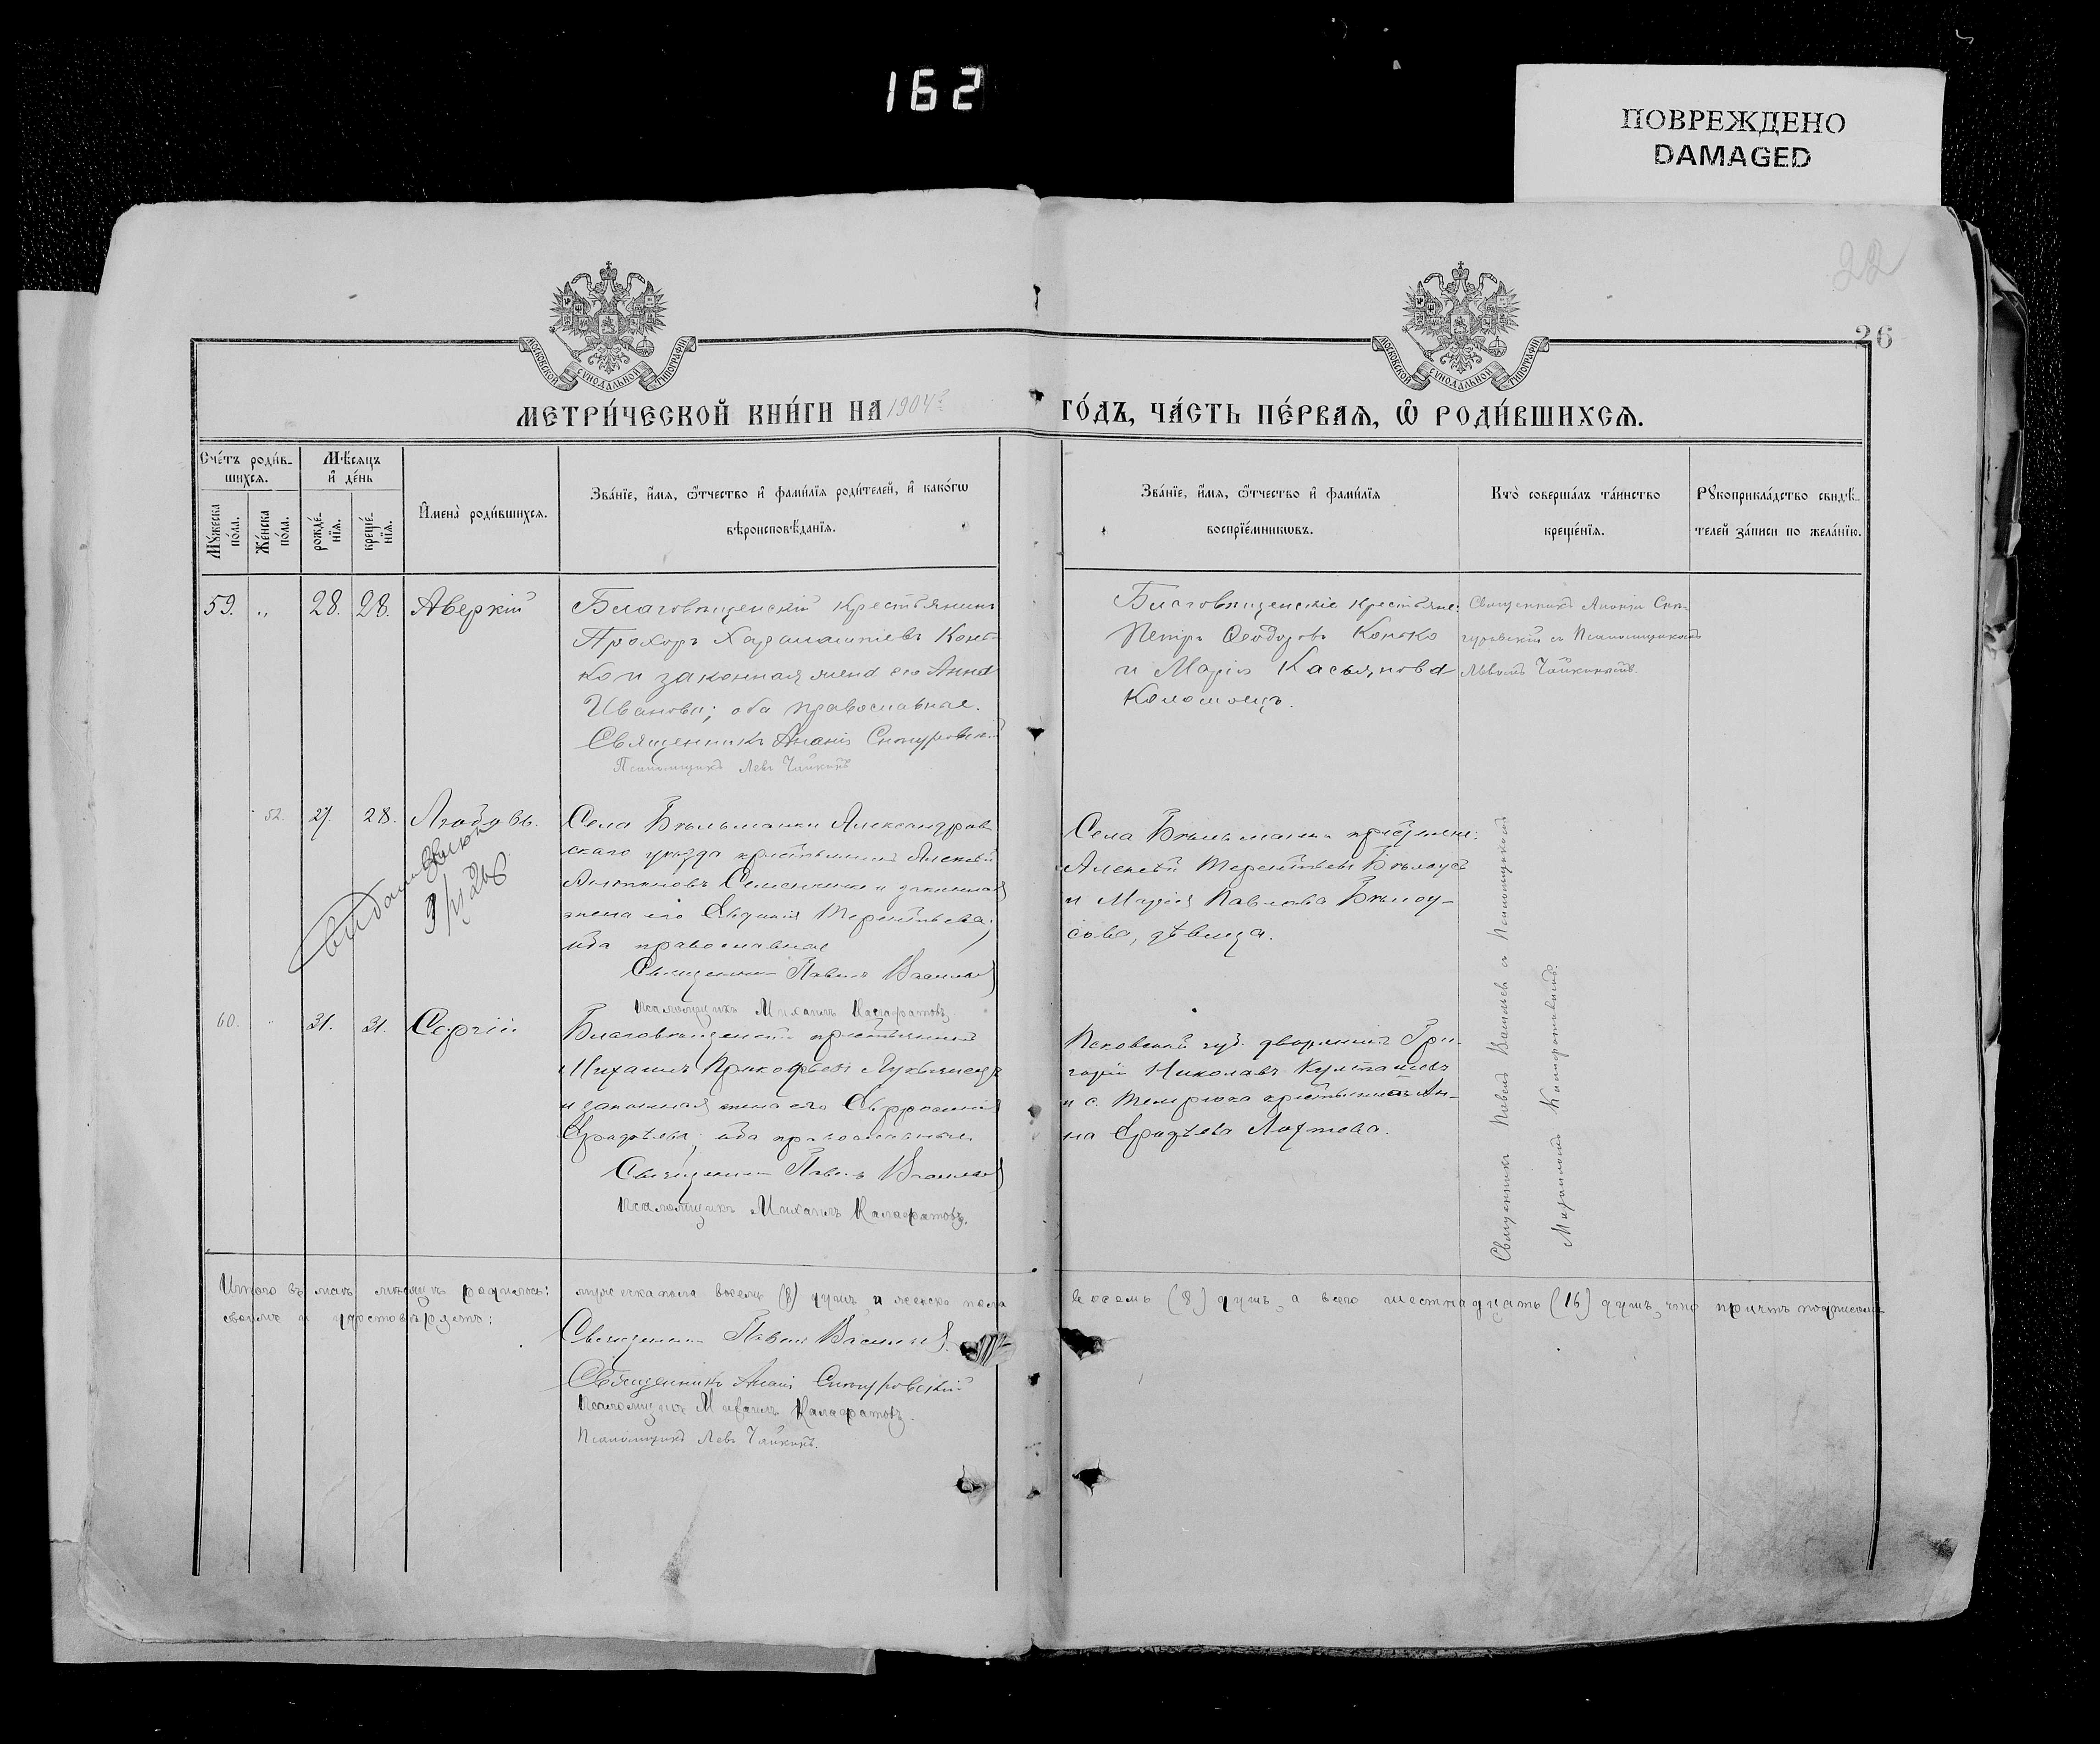 162
ПОВРЕЖДЕНО
DAMAGED
22
26
МОСКОВСКОЙ СУНОДАЛЬНОЙ ТИПОГРАФІИ
МОСКОВСКОЙ СУНОДАЛЬНОЙ ТИПОГРАФІИ
МЕТРИ́ЧЕСКОЙ КНИ́ГИ НА 1904 ГО́ДЪ, ЧА́СТЬ ПЕ́РВАѦ, Ѽ РОДИ́ВШИХСѦ.
Сче́тъ роди́в-
шихсѧ.
Мꙋ́жеска
по́ла.
Же́нска
по́ла.
Мѣ́сѧцъ
и҆ де́нь
рожде́-
нїѧ.
креще́-
нїѧ.
И҆мена̀ роди́вшихсѧ.
Зва́нїе, и҆́мѧ, ѻ҆́тчество и҆ фами́лїѧ роди́телей, и҆ како́гѡ
вѣроисповѣ́данїѧ.
Зва́нїе, и҆́мѧ, ѻ҆́тчество и҆ фами́лїѧ
воспрїе́мникѡвъ.
Кто̀ соверша́лъ та́инство
креще́нїѧ.
Рꙋкоприкла́дство свидѣ́-
телей за́писи по жела́нїю.
59. „ 28. 28. Аверкій
Благовѣщенскій крестьянинъ
Прохоръ Харалампіевъ Конь-
ко и законная жена его Анна
Иванова; оба православные.
Священникъ Ананій Снѣгуровскій
Псаломщикъ Левъ Чайкинъ
Благовѣщенскіе крестьяне:
Петръ Ѳеодоровъ Конько
и Марія Касьянова
Коломоецъ.
Священникъ Ананій Снѣ-
гуровскій съ Псаломщикомъ
Львомъ Чайкинымъ.
52. 27. 28. Любовь.
Села Бѣльманки Александров-
скаго уѣзда крестьянинъ Алексѣй
Семененко и законная
жена его Евдокія Терентьева;
оба православные
Священникъ Павелъ Васильевъ
Псаломщикъ Михаилъ Калафатовъ
Села Бѣльманки крестьяне:
Алексѣй Терентьевъ Бѣлоусъ
и Марія Павлова Бѣлоу-
сова, дѣвица.
60. 31. 31. Сергій
Благовѣщенскій крестьянинъ
Михаилъ Прокофьевъ Лукьяненко
и законная жена его Евфросинія
оба православные.
Священникъ Павелъ Васильевъ
Псаломщикъ Михаилъ Калафатовъ.
Псковской губ. дворянинъ Гри-
горій Николаевъ
и с. Темрюка крестьянка Ан-
на
Священникъ Павелъ Васильевъ съ Псаломщикомъ
Михаиломъ Калафатовымъ.
Итого въ маѣ мѣсяцѣ родилось: мужеска пола восемь (8) душъ и женска пола восемь (8) душъ, а всего шестнадцать (16) душъ, что причтъ подписомъ
своимъ и удостовѣряетъ:
Священникъ Павелъ Васильевъ.
Священникъ Ананій Снѣгуровскій
Псаломщикъ Михаилъ Калафатовъ.
Псаломщикъ Левъ Чайкинъ.